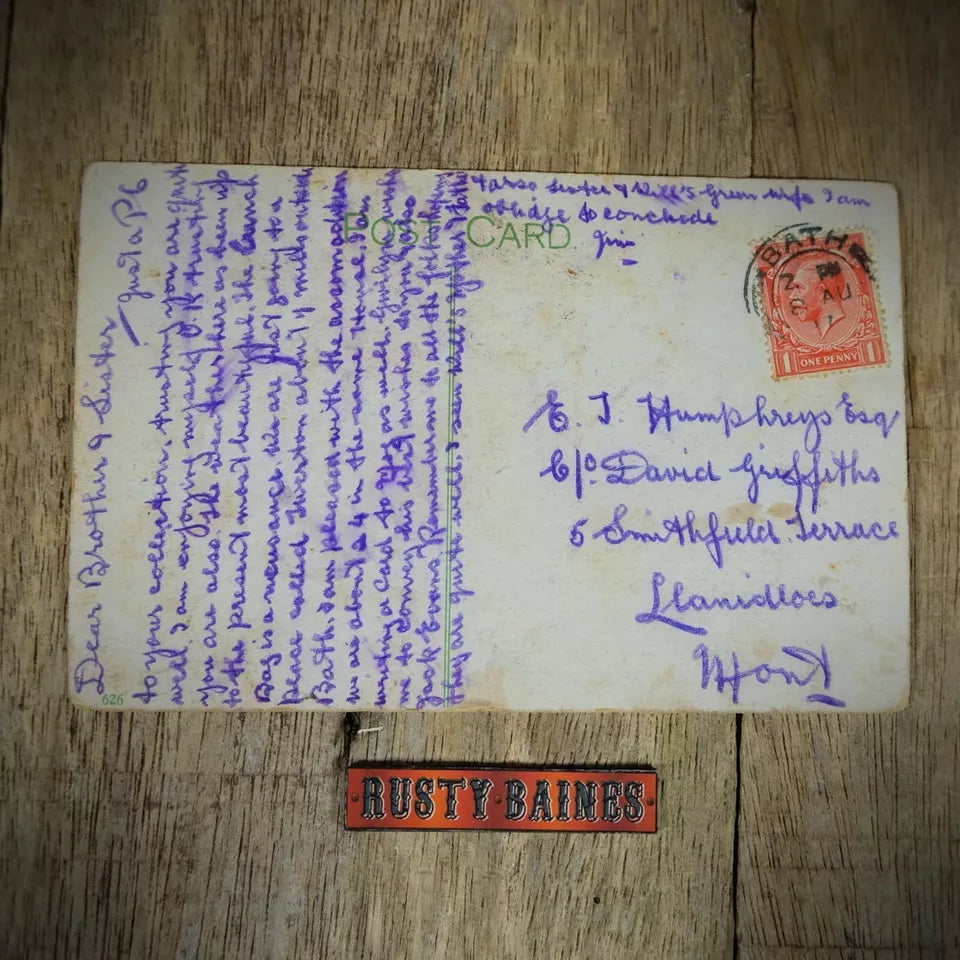 POST CARD
Dear Brother & Sister
Just a P.C
to your collection, trusting you are quite
well, I am enjoying myself O.K trusting
you are also. The Weather here is
to the present most beautiful. The
Bag is a nuisance. We are going to a
place called Weston about miles outside
Bath. I am pleased with the
we are about 24 in the same
writing a Card to as well.
me to convey his best wishes to you
Jack Evans Remembrans to all the
they are quite well
also sister & Will's wife I am
oblidge to conclude
Jim
BATH
2 PM
AU
1 ONE PENNY 1
E. J Humphreys Esq
C/o David Griffiths
5 Smithfield Terrace
Llanidloes
Mont
626
RUSTY BAINES